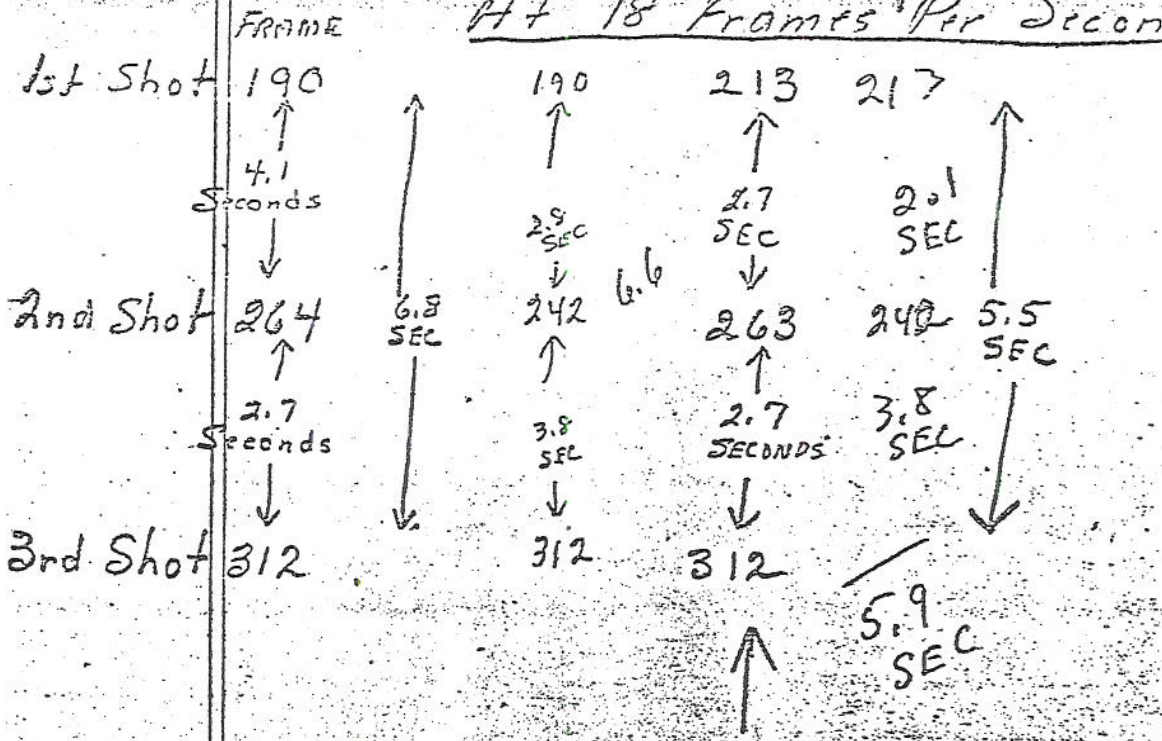 FRAME At 18 Frames Per Secon
1st Shot 190 190 213 217
4.1
Seconds
2.8
SEC
2.7
SEC
2.1
SEC
2nd Shot 264 6.8
SEC
242 6.6 263 242 5.5
SEC
2.7
Seconds
3.8
SEC
2.7
SECONDS
3.8
SEC
3rd Shot 312 312 312
5.9
SEC